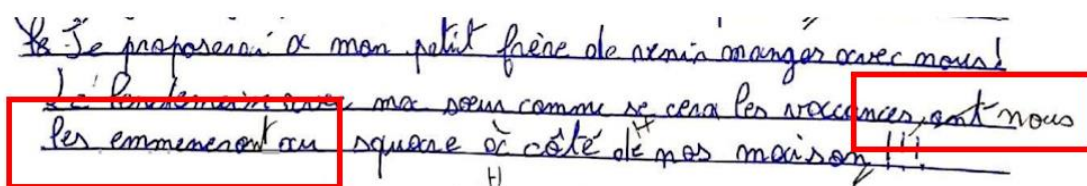 Je proposerai a mon petit frère de venir manger avec nous!
Le lendemain avec ma sœur comme se cera les vaccances, ont nous
les emmeneront au square à côté de nos maison!!!